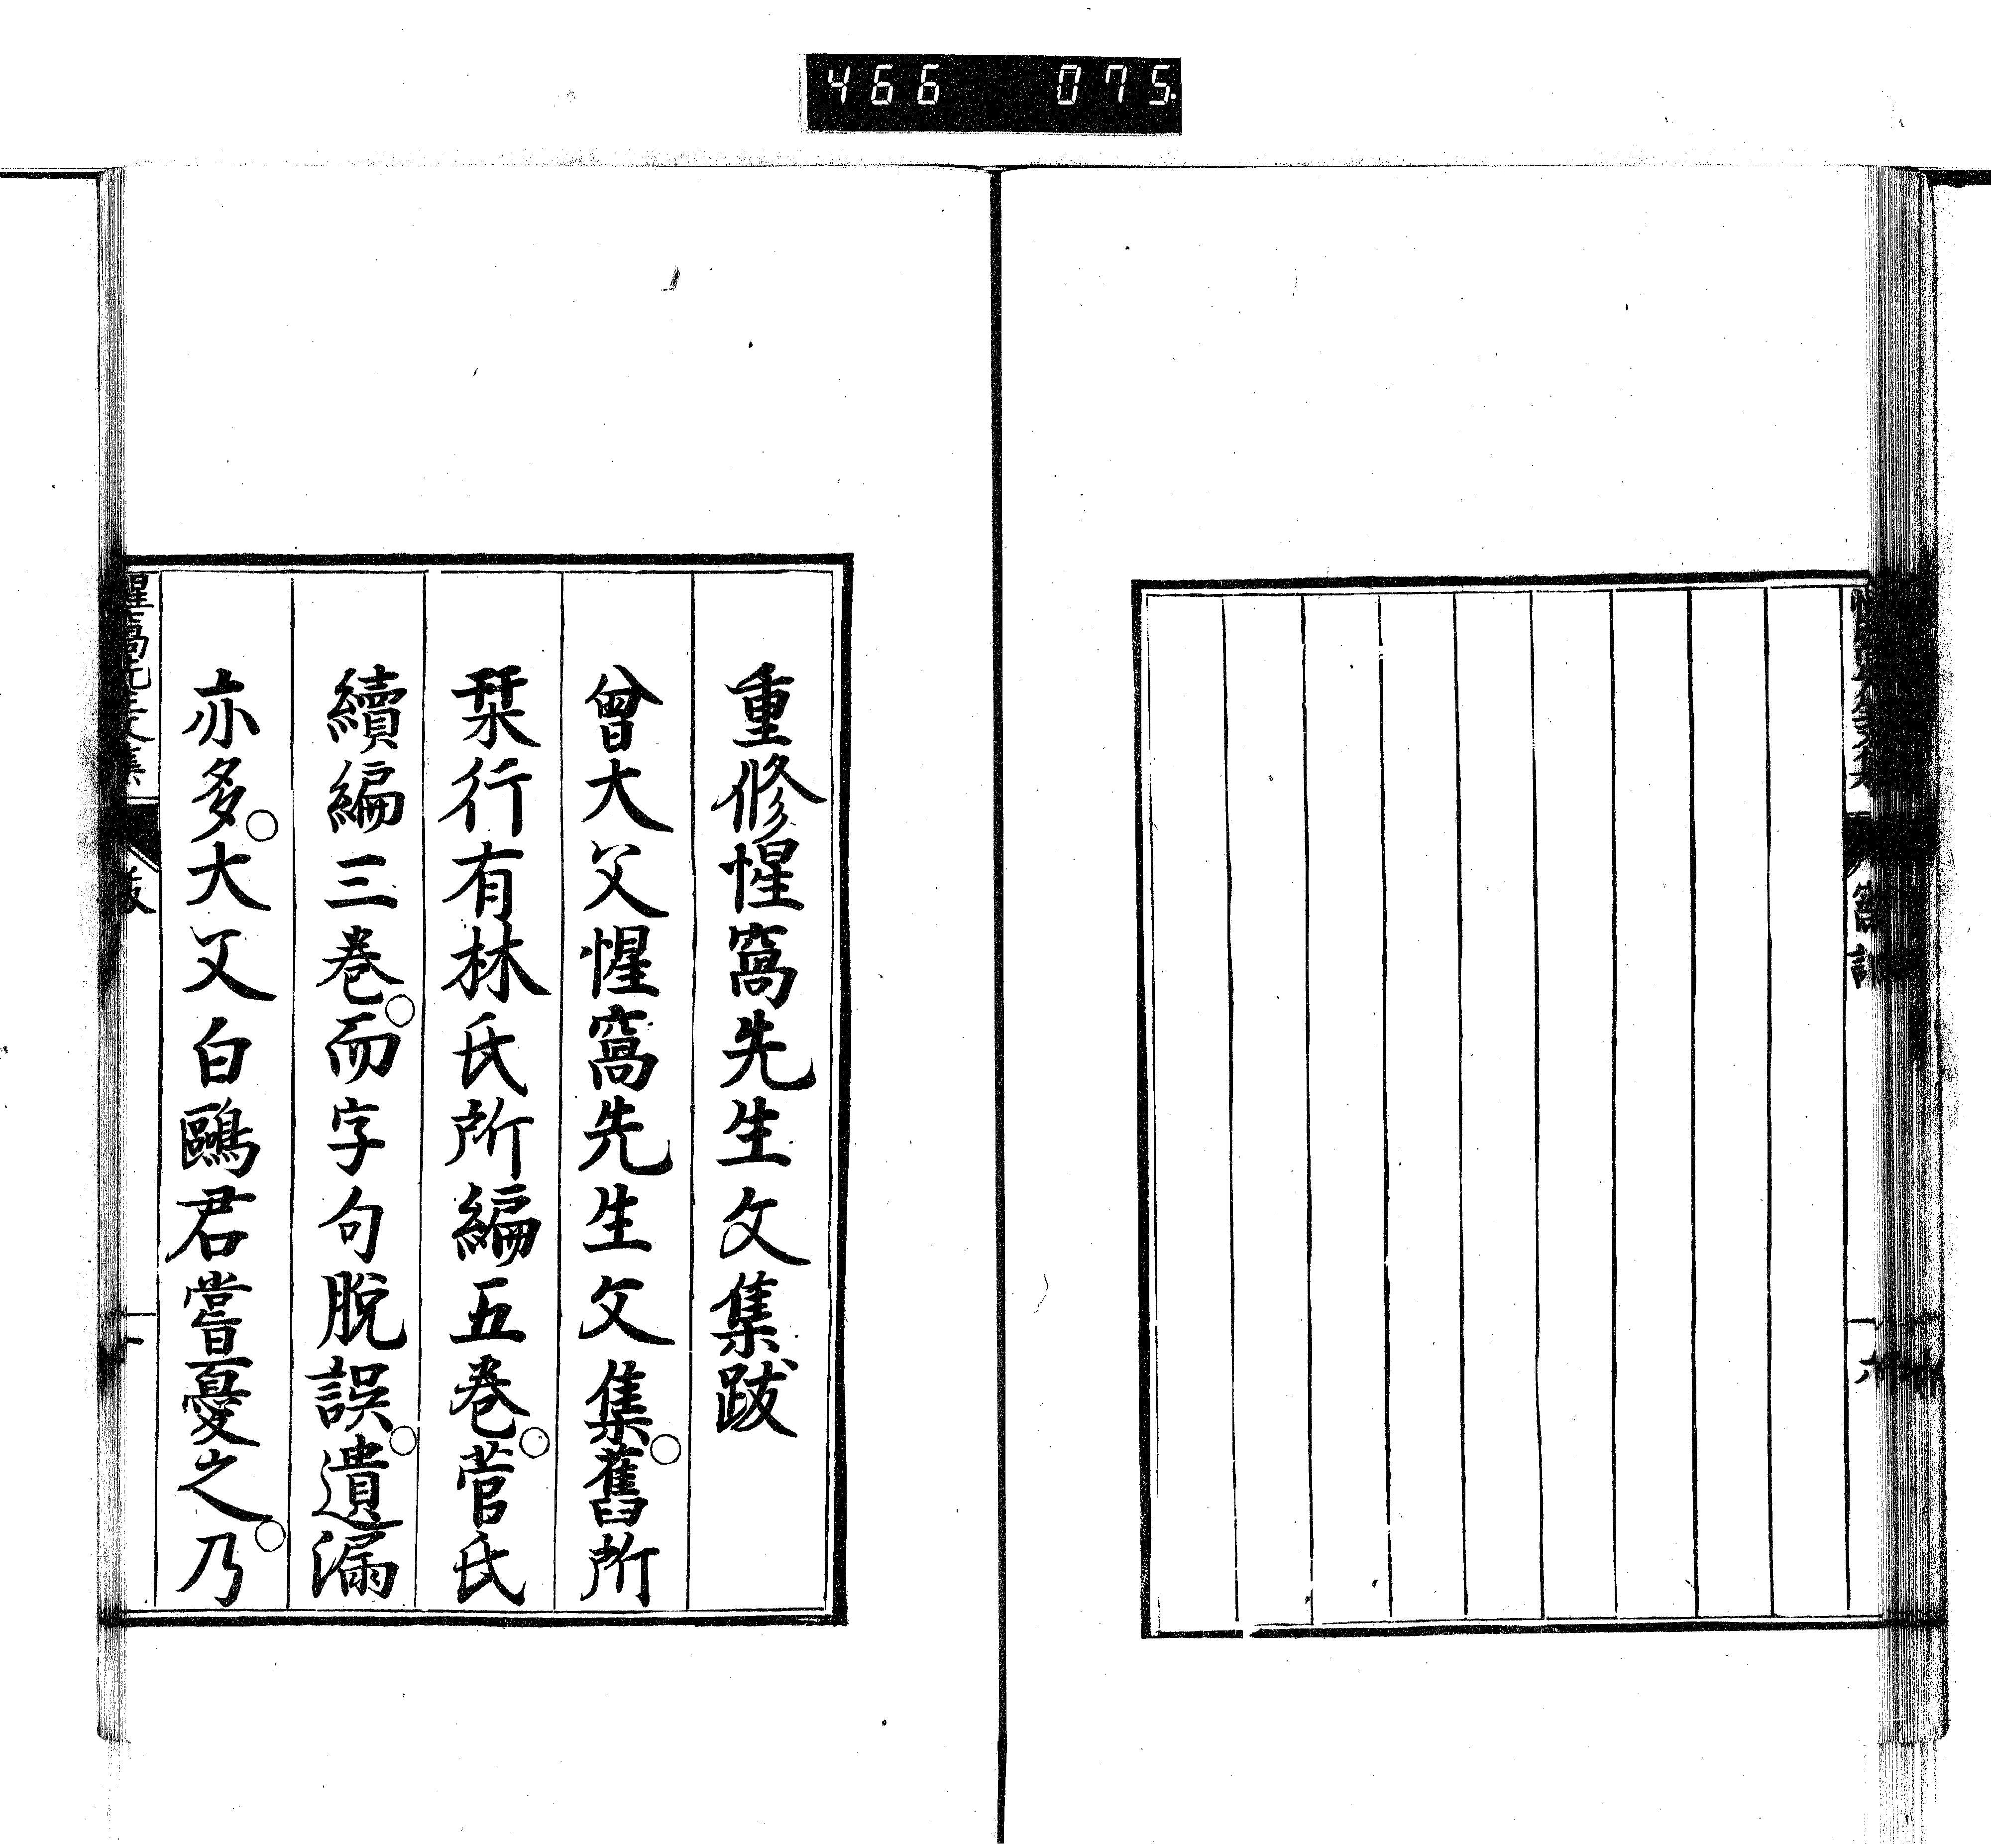 466 075
重修惺窩先生文集跋
曾大父惺窩先生文集○舊所
栞行有林氏所編五卷○菅氏
續編三卷○而字句脫誤○遺漏
亦多○大父白鷗君嘗憂之○乃